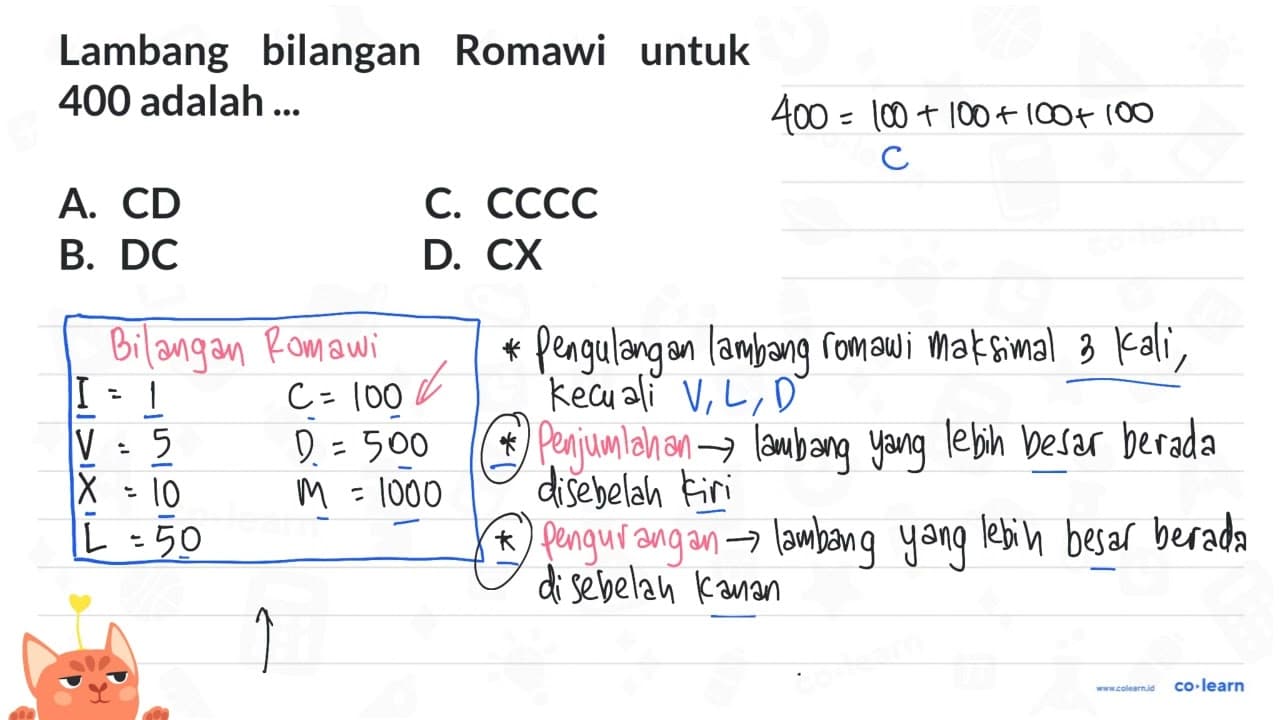 Lambang bilangan Romawi untuk
400 adalah ...
400 = 100 + 100 + 100 + 100
C
A. CD
C. CCCC
B. DC
D. CX
Bilangan Romawi
I = 1
C = 100
V = 5
D = 500
X = 10
M = 1000
L = 50
* Pengulangan lambang romawi maksimal 3 kali,
kecuali V, L, D
* Penjumlahan → lambang yang lebih besar berada
disebelah kiri
* Pengurangan → lambang yang lebih besar berada
disebelah kanan
www.colearn.id
co·learn